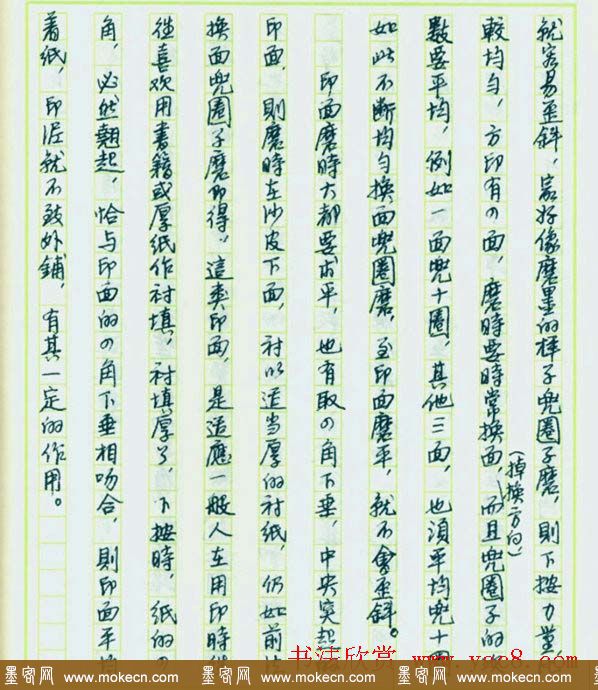 就容易歪斜，最好像磨墨的样子兜圈子磨，則下按力量
較均匀，方印有の面，磨時要時常換面，而且兜圈子的
（掉換方向）
數要平均，例如一面兜十圈，其他三面，也須平均兜十圈
如此不断均匀換面兜圈磨，至印面磨平，就不會歪斜。
印面磨時大都要求平，也有取の角下垂，中央突起
印面，則磨時在沙皮下面，衬以适当厚的衬纸，仍如前法
換面兜圈子磨即得。這类印面，是适應一般人在用印時往
往喜欢用書籍或厚纸作衬填，衬填厚了，下按時，纸的の
角，必然翹起，恰与印面的の角下垂相吻合，則印面平均
着纸，印泥就不致外鋪，有其一定的作用。
书法欣赏 www.yac8.com
墨客网 www.mokecn.com 墨客网 www.mokecn.com 墨客网 www.mokecn.com